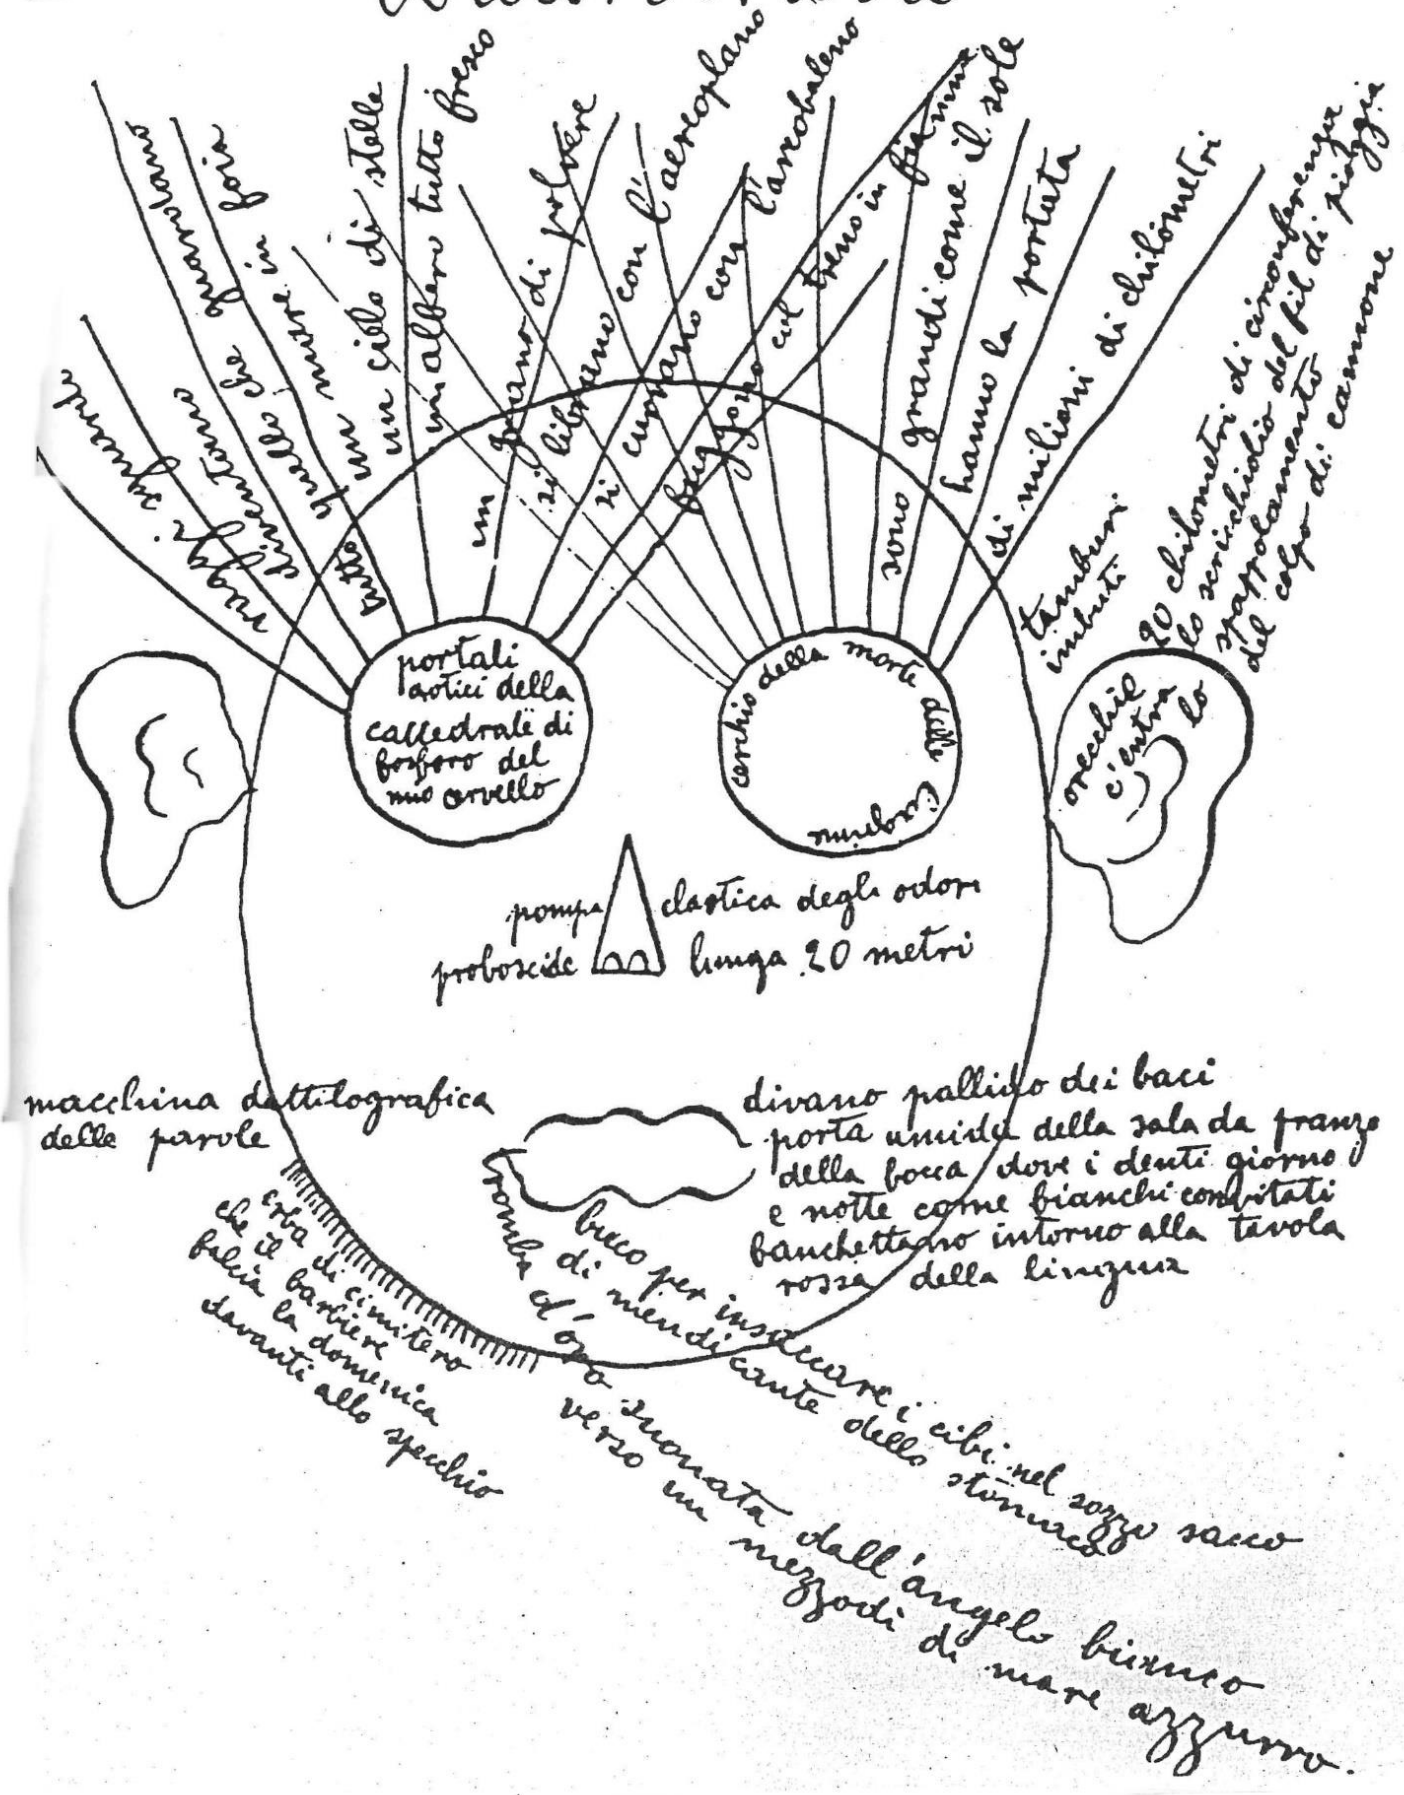 raggi sguardi
diventano
tutto quello che guardano
un mare in foia
un cielo di stelle
un albero tutto fresco
un grano di polvere
si librano con l'aereoplano
si curvano con l'arcobaleno
fuggono col treno in fiamme
sono grandi come il sole
hanno la portata
di milioni di chilometri
tamburi
imbuti
20 chilometri di circonferenza
lo scricchiolio del fil di pioggia
spappolamento
del colpo di cannone
portali
gotici della
cattedrale di
fosforo del
mio cervello
cerchio della morte delle
orecchie
c'entra
lo
pompa elastica degli odori
proboscide lunga 20 metri
macchina dattilografica
delle parole
divano pallido dei baci
porta umida della sala da pranzo
della bocca dove i denti giorno
e notte come bianchi convitati
banchettano intorno alla tavola
rossa della lingua
erba di cimitero
che il barbiere
falcia la domenica
davanti allo specchio
buco per insaccare i cibi nel sozzo sacco
di mendicante dello stomaco
tromba d'oro suonata dall'angelo bianco
verso un mezzodì di mare azzurro.